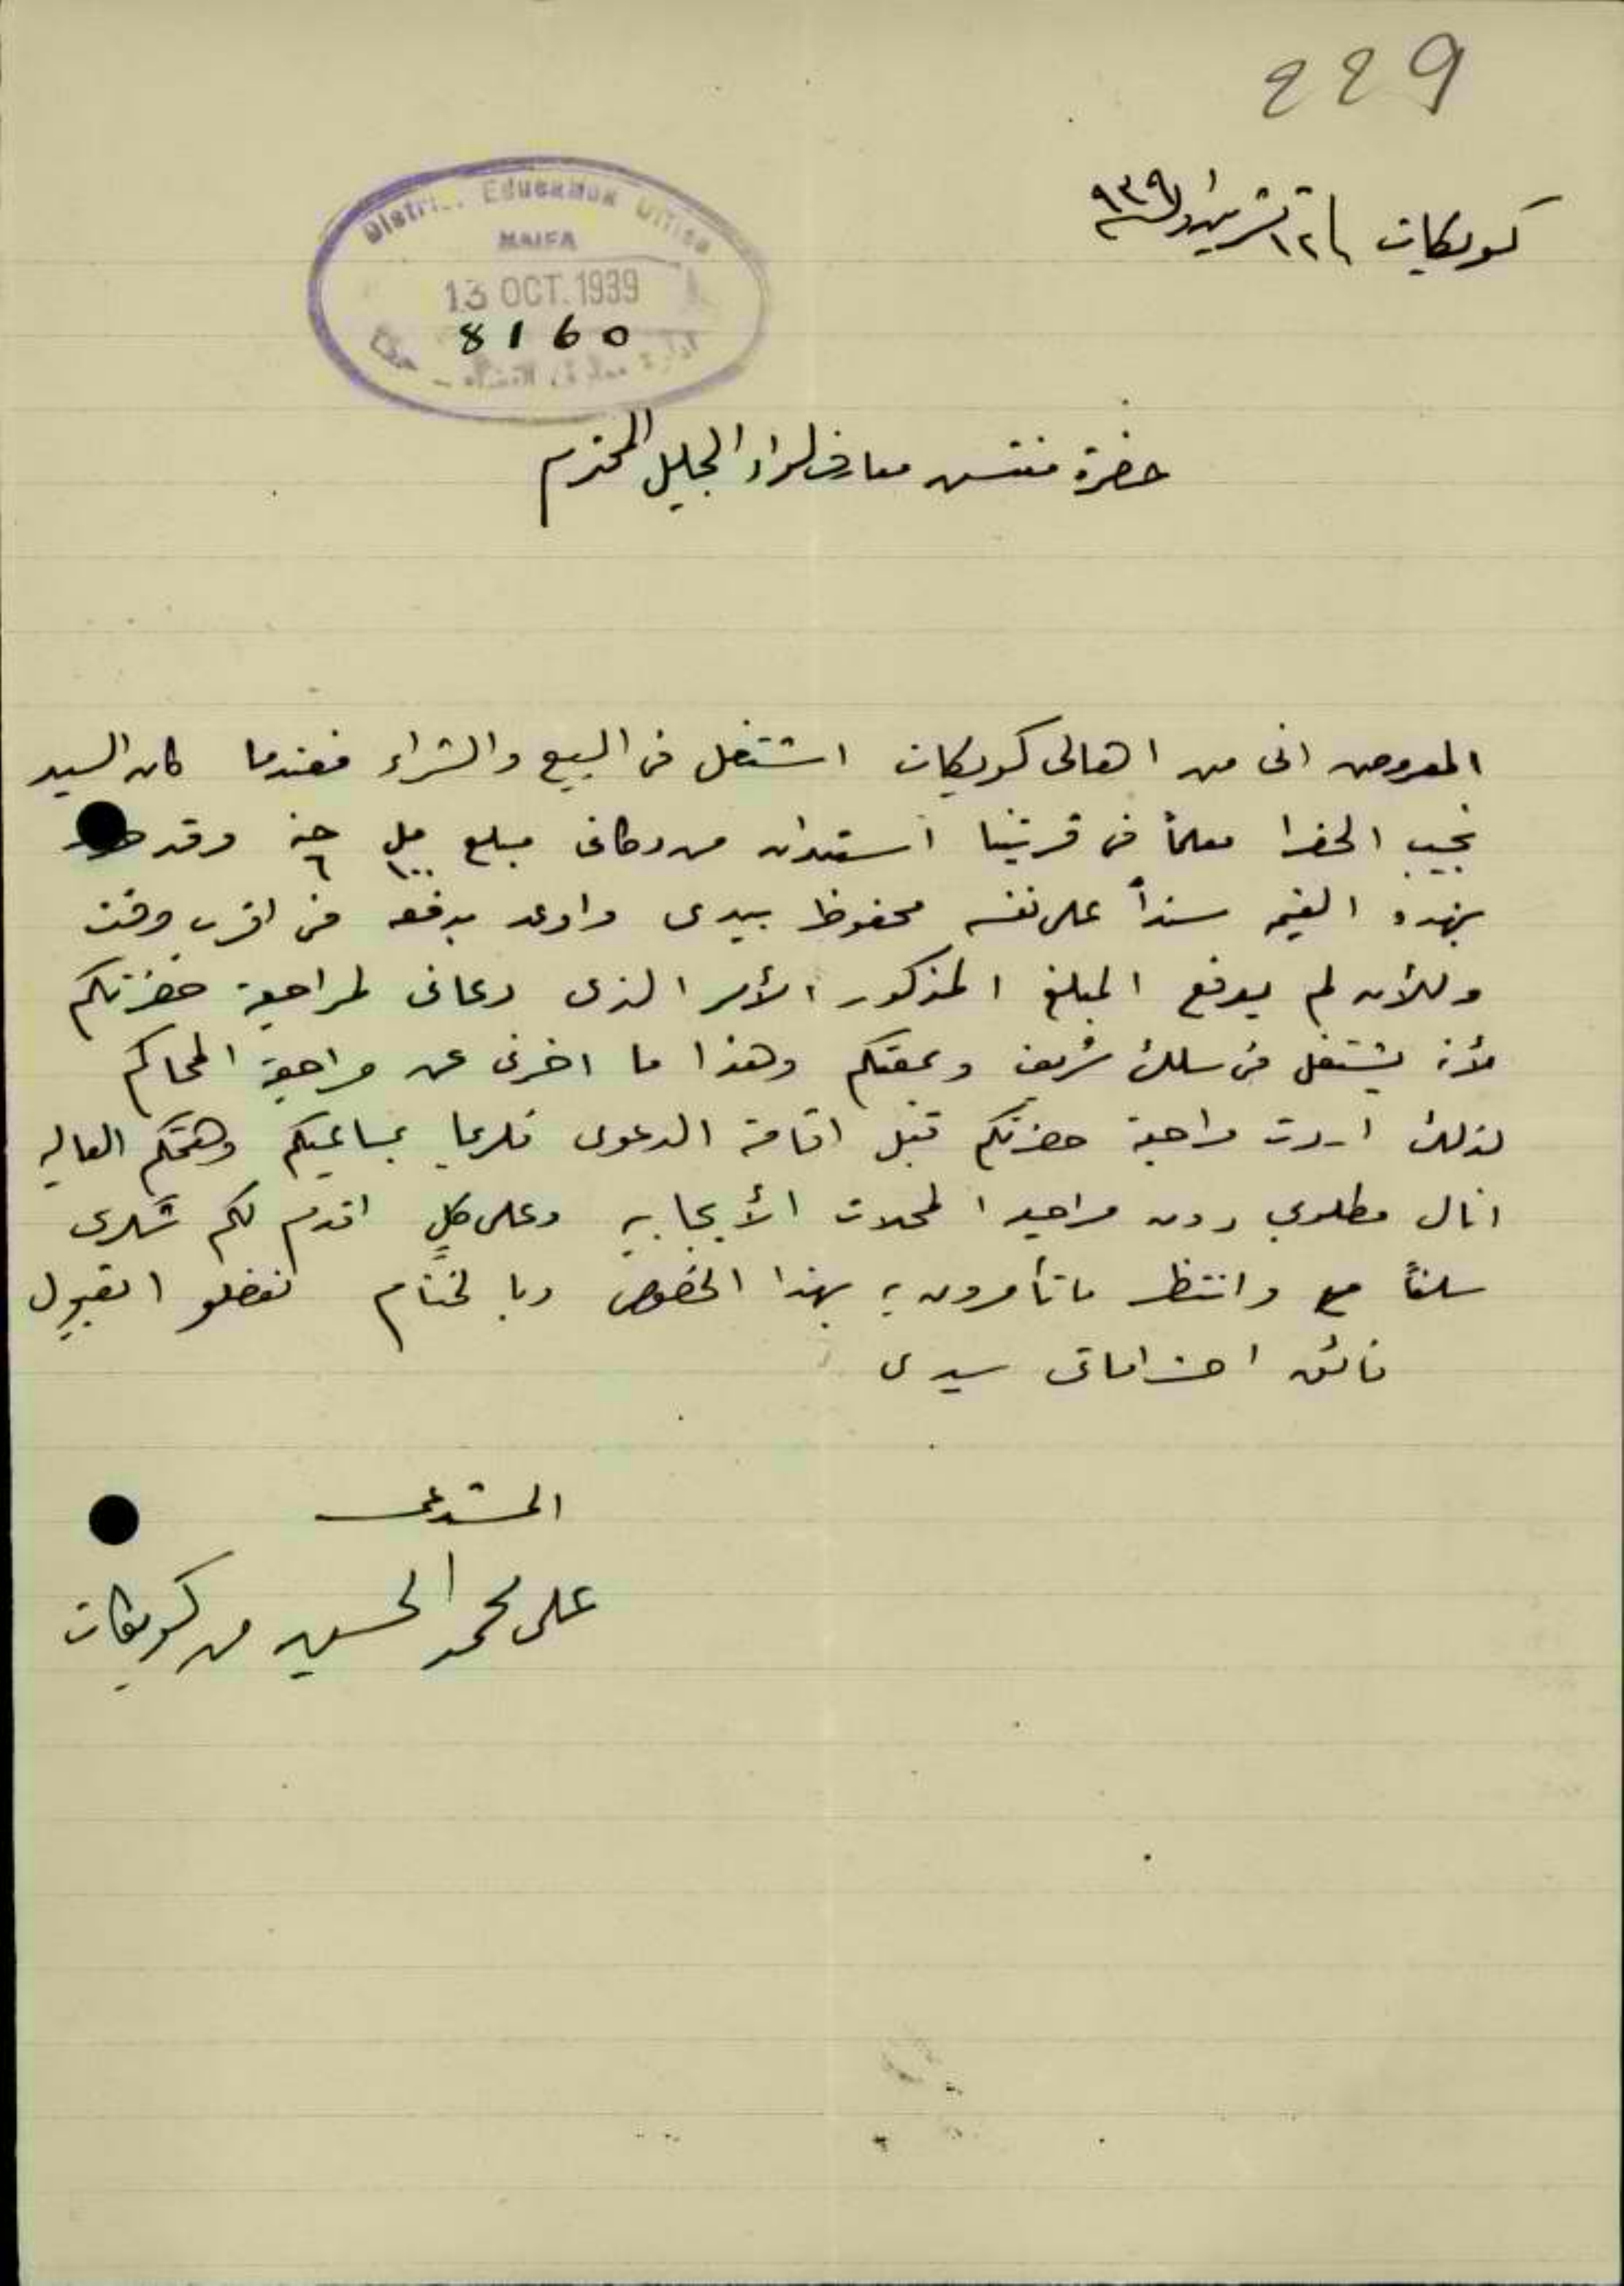 229
كويكات في ١٢ تشرين اول ٩٣٩
District Education Office
HAIFA
13 OCT. 1939
8160
ادارة معارف اللواء - حيفا
حضرة مفتش معارف لواء الجليل المحترم
المعروض انى من اهالى كويكات اشتغل فى البيع والشراء فعندما كان السيد
نجيب الخضرا معلماً فى قريتنا استدان من دكانى مبلغ ١٠٠ مل ٦ جنه وقد
بهذه القيمه سنداً على نفسه محفوظ بيدى واوعد بدفعه فى اقرب وقت
وللأن لم يدفع المبلغ المذكور الأمر الذى دعانى لمراجعة حضرتكم
لأنه يشتغل فى سلك شريف وبمعيتكم وهذا ما اخرنى عن مراجعة المحاكم
لذلك اردت مراجعة حضرتكم قبل اقامة الدعوى فلربما بمساعيكم وهمتكم العاليه
انال مطلوبي دون مراجعة المحلات الأيجابيه وعلى كلٍ اقدم لكم شكرى
سلفاً وانتظر ما تأمرون به بهذا الخصوص وبالختام تفضلو ابقبول
فائق احتراماتى سيدى
المستدعى
على محمد الحسين من كويكات